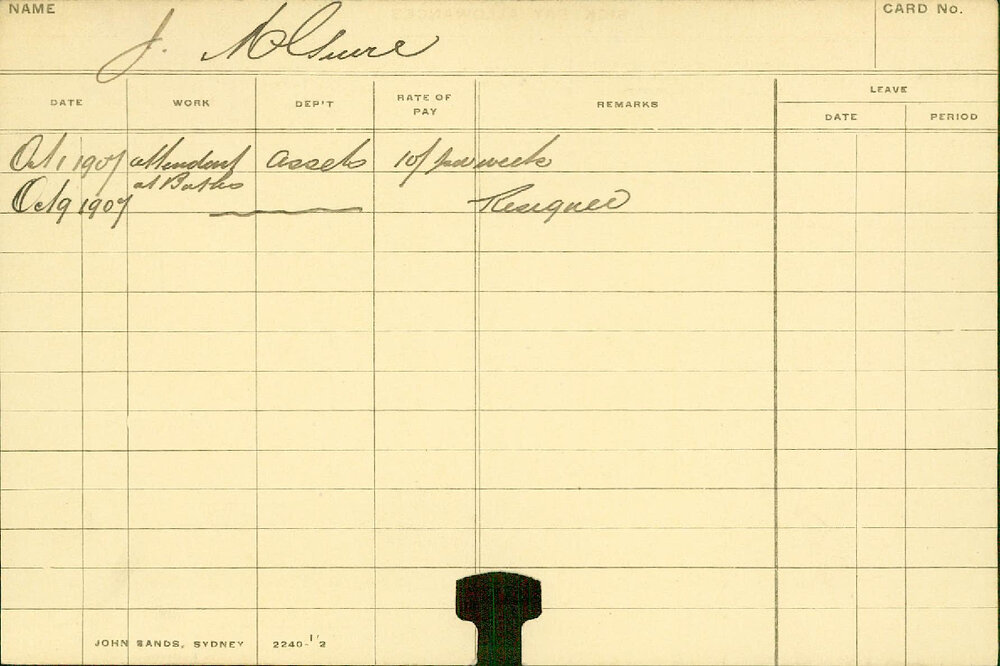 NAME
CARD No.
J. McGuire
DATE WORK DEP'T RATE OF PAY REMARKS LEAVE
DATE PERIOD
Oct 1 1907 attendant assets 10/ per week
at Baths
Oct 9 1907 Resigned
JOHN SANDS, SYDNEY 2240-1'2